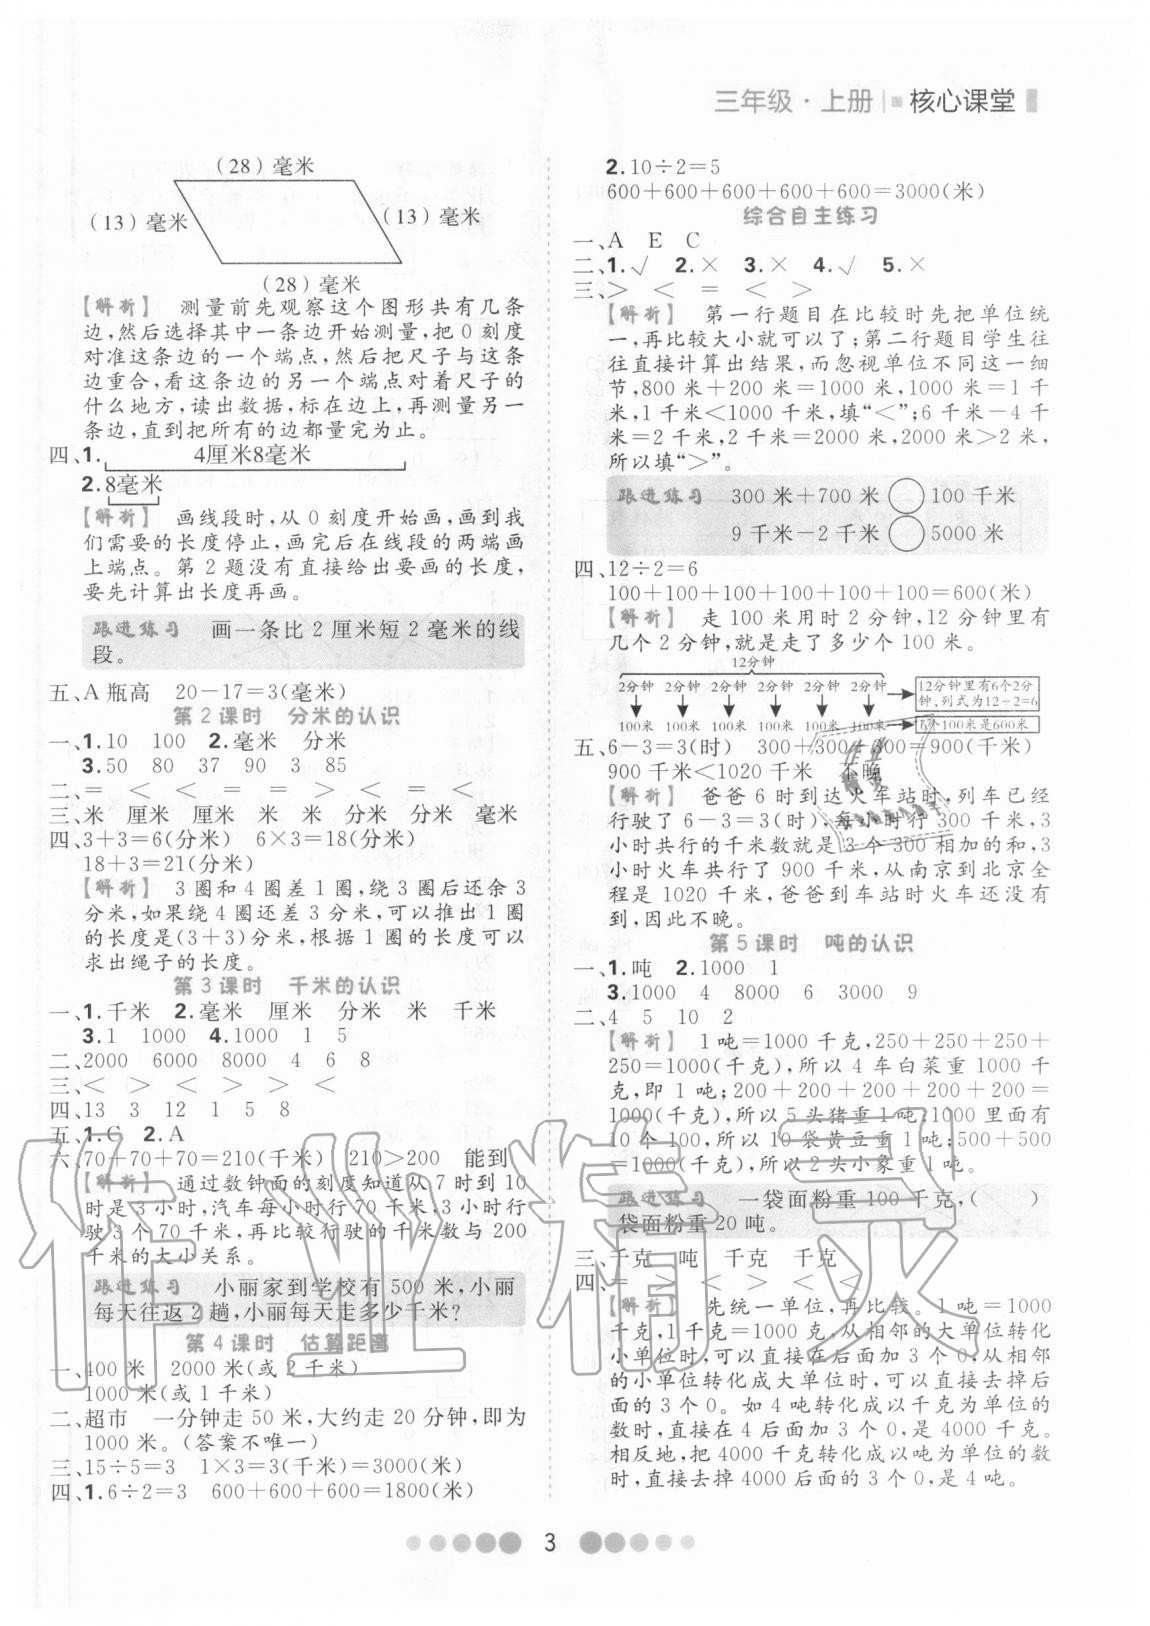 三年级·上册 核心课堂
(28)毫米
(13)毫米
(13)毫米
(28)毫米
【解析】 测量前先观察这个图形共有几条
边,然后选择其中一条边开始测量,把0刻度
对准这条边的一个端点,然后把尺子与这条
边重合,看这条边的另一个端点对着尺子的
什么地方,读出数据,标在边上,再测量另一
条边,直到把所有的边都量完为止。
四、1. 4厘米8毫米
2. 8毫米
【解析】 画线段时,从0刻度开始画,画到我
们需要的长度停止,画完后在线段的两端画
上端点。第2题没有直接给出要画的长度,
要先计算出长度再画。
跟进练习 画一条比2厘米短2毫米的线
段。
五、A瓶高 20-17=3(毫米)
第2课时 分米的认识
一、1.10 100 2.毫米 分米
3.50 80 37 90 3 85
二、= < < < > = <
三、米 厘米 厘米 米 米 分米 分米 毫米
四、3+3=6(分米) 6×3=18(分米)
18+3=21(分米)
【解析】 3圈和4圈差1圈,绕3圈后还余3
分米,如果绕4圈还差3分米,可以推出1圈
的长度是(3+3)分米,根据1圈的长度可以
求出绳子的长度。
第3课时 千米的认识
一、1.千米 2.毫米 厘米 分米 米 千米
3.1 1000 4.1000 1 5
二、2000 6000 8000 4 6 8
三、< > < > > <
四、13 3 12 1 5 8
五、1.C 2.A
六、70+70+70=210(千米) 210>200 能到
【解析】 通过数钟面的刻度知道从7时到10
时是3小时,汽车每小时行70千米,3小时行
驶3个70千米,再比较行驶的千米数与200
千米的大小关系。
跟进练习 小丽家到学校有500米,小丽
每天往返2趟,小丽每天走多少千米?
第4课时 估算距离
一、400米 2000米(或2千米)
1000米(或1千米)
二、超市 一分钟走50米,大约走20分钟,即为
1000米。(答案不唯一)
三、15÷5=3 1×3=3(千米)=3000(米)
四、1.6÷2=3 600+600+600=1800(米)
2.10÷2=5
600+600+600+600+600=3000(米)
综合自主练习
一、A E C
二、1.√ 2.× 3.× 4.√ 5.×
三、> < = < >
【解析】 第一行题目在比较时先把单位统
一,再比较大小就可以了;第二行题目学生往
往直接计算出结果,而忽视单位不同这一细
节,800米+200米=1000米,1000米=1千
米,1千米<1000千米,填“<”;6千米-4千
米=2千米,2千米=2000米,2000米>2米,
所以填“>”。
跟进练习 300米+700米○100千米
9千米-2千米○5000米
四、12÷2=6
100+100+100+100+100+100=600(米)
【解析】 走100米用时2分钟,12分钟里有
几个2分钟,就是走了多少个100米。
12分钟
2分钟 2分钟 2分钟 2分钟 2分钟 2分钟
12分钟里有6个2分
钟,列式为12÷2=6
100米 100米 100米 100米 100米 100米
6个100米是600米
五、6-3=3(时) 300+300+300=900(千米)
900千米<1020千米 不晚
【解析】 爸爸6时到达火车站时,列车已经
行驶了6-3=3(时),每小时行300千米,3
小时共行的千米数就是3个300相加的和,3
小时火车共行了900千米,从南京到北京全
程是1020千米,爸爸到车站时火车还没有
到,因此不晚。
第5课时 吨的认识
一、1.吨 2.1000 1
3.1000 4 8000 6 3000 9
二、4 5 10 2
【解析】 1吨=1000千克,250+250+250+
250=1000(千克),所以4车白菜重1000千
克,即1吨;200+200+200+200+200=
1000(千克),所以5头猪重1吨;1000里面有
10个100,所以10袋黄豆重1吨;500+500
=1000(千克),所以2头小象重1吨。
跟进练习 一袋面粉重100千克,( )
袋面粉重20吨。
三、千克 吨 千克 千克
四、= > < > < <
【解析】 先统一单位,再比较。1吨=1000
千克,1千克=1000克,从相邻的大单位转化
小单位时,可以直接在后面加3个0,从相邻
的小单位转化成大单位时,可以直接去掉后
面的3个0。如4吨转化成以千克为单位的
数时,直接在4后面加3个0,是4000千克。
相反地,把4000千克转化成以吨为单位的数
时,直接去掉4000后面的3个0,是4吨。
3
作业精灵